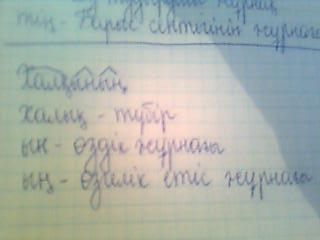 журнақ
тің - Барыс септігінің жұрнағы
Халқының
халық - түбір
ын - өздік жұрнағы
ың - өзгелік етіс жұрнағы